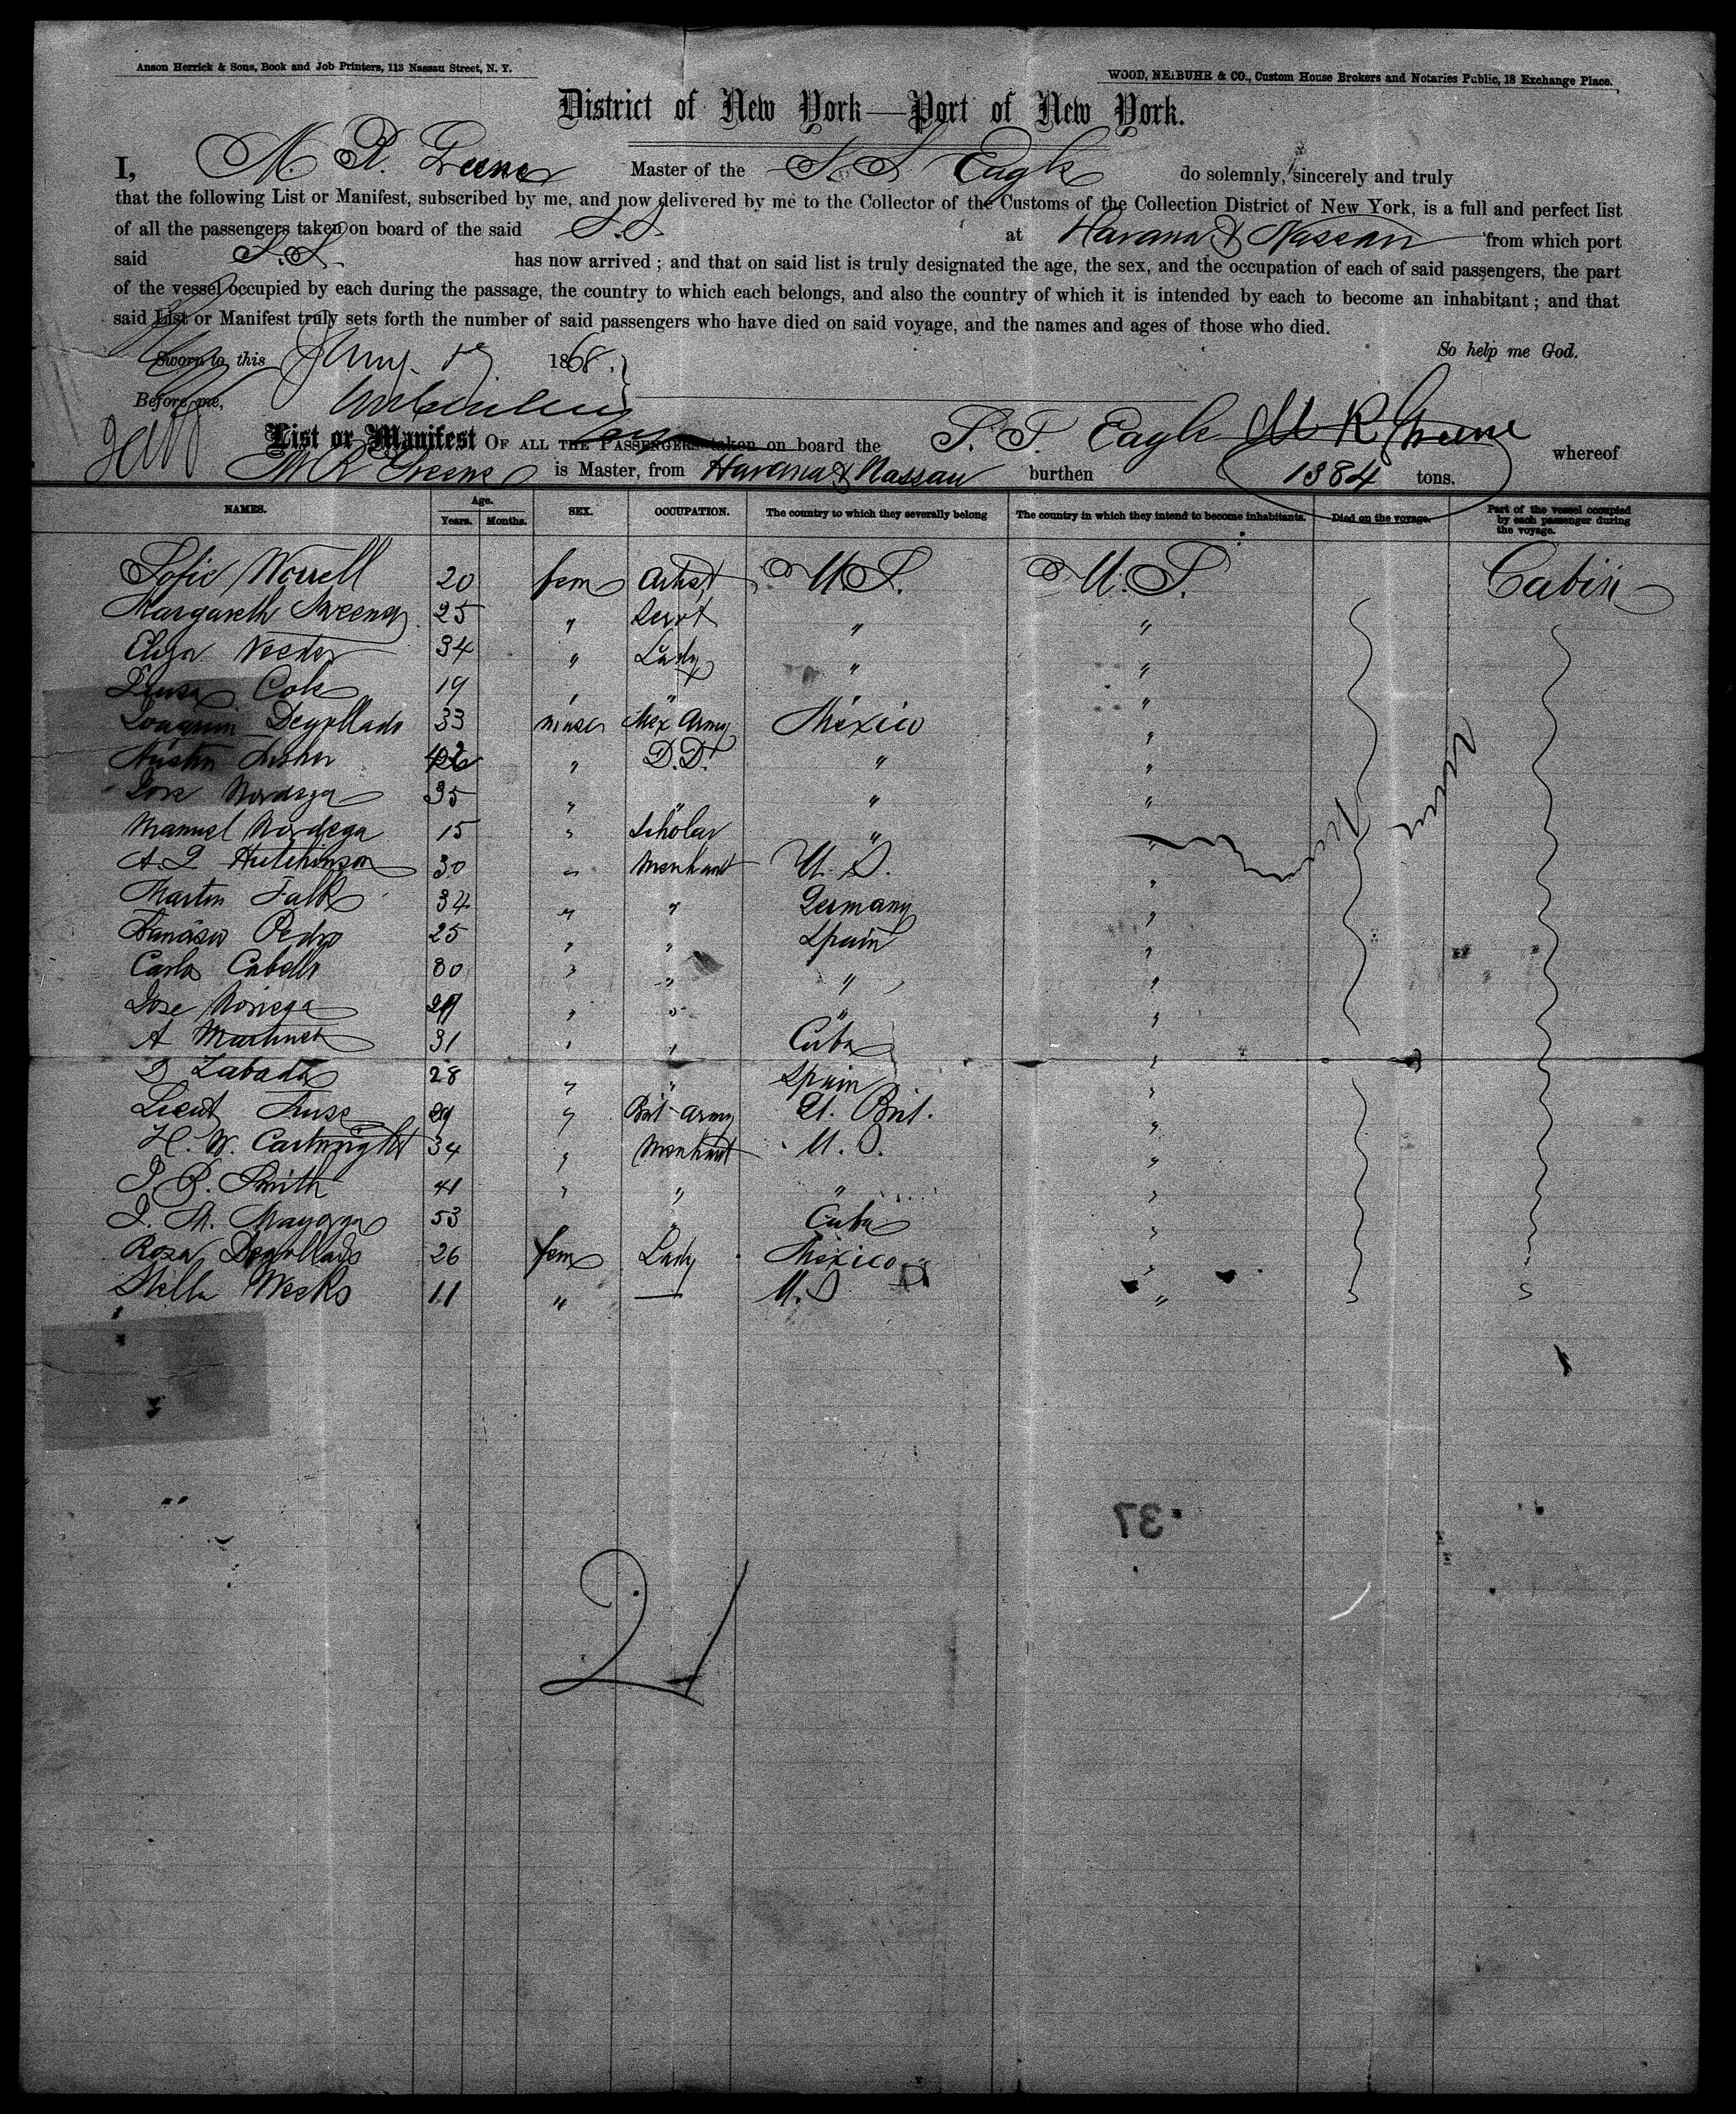 Anson Herrick & Sons, Book and Job Printers, 113 Nassau Street, N. Y.
WOOD, NEIBUHR & CO., Custom House Brokers and Notaries Public, 18 Exchange Place.
District of New York—Port of New York.
I, M. R. Greene Master of the S. S Eagle do solemnly, sincerely and truly
that the following List or Manifest, subscribed by me, and now delivered by me to the Collector of the Customs of the Collection District of New York, is a full and perfect list
of all the passengers taken on board of the said S.S at Havana & Nassau from which port
said S.S. has now arrived ; and that on said list is truly designated the age, the sex, and the occupation of each of said passengers, the part
of the vessel occupied by each during the passage, the country to which each belongs, and also the country of which it is intended by each to become an inhabitant ; and that
said List or Manifest truly sets forth the number of said passengers who have died on said voyage, and the names and ages of those who died.
So help me God.
Sworn to this Jany. 1868.
Before me,
M R Greene
List or Manifest OF ALL THE PASSENGERS taken on board the S. S. Eagle whereof
M R Greene is Master, from Havana & Nassau burthen 1384 tons.
NAMES. Age. Years. Months. SEX. OCCUPATION. The country to which they severally belong The country in which they intend to become inhabitants. Died on the voyage. Part of the vessel occupied by each passenger during the voyage.
Sofie Worrell 20 fem Artist U.S. U.S. Cabin
Margareth 25 " Servt " "
Eliza Veeder 34 " Lady " "
Louisa Cole 19 " " " "
Joaquin Degollado 33 masc Mex Army Mexico "
Austin 42 " D.D. " "
Jose Nordega 35 " " " "
Manuel Nordega 15 " Scholar " "
A. Hutchinson 30 " Merchant U. S. "
Martin Falk 34 " " Germany "
Pedro 25 " " Spain "
Carlos Cabello 30 " " " "
Jose Noriega " " " "
A Martinez 31 " " Cuba "
Zabada 28 " " Spain "
Lieut 29 " Brit Army Gt. Brit. "
H. W. Cartwright 34 " Merchant U. S. "
J. B. Smith 41 " " " "
J. M. Mayorga 53 " Cuba "
Rosa Degollado 26 fem Lady Mexico "
Stella Weeks 11 " — U.S "
None
37
21